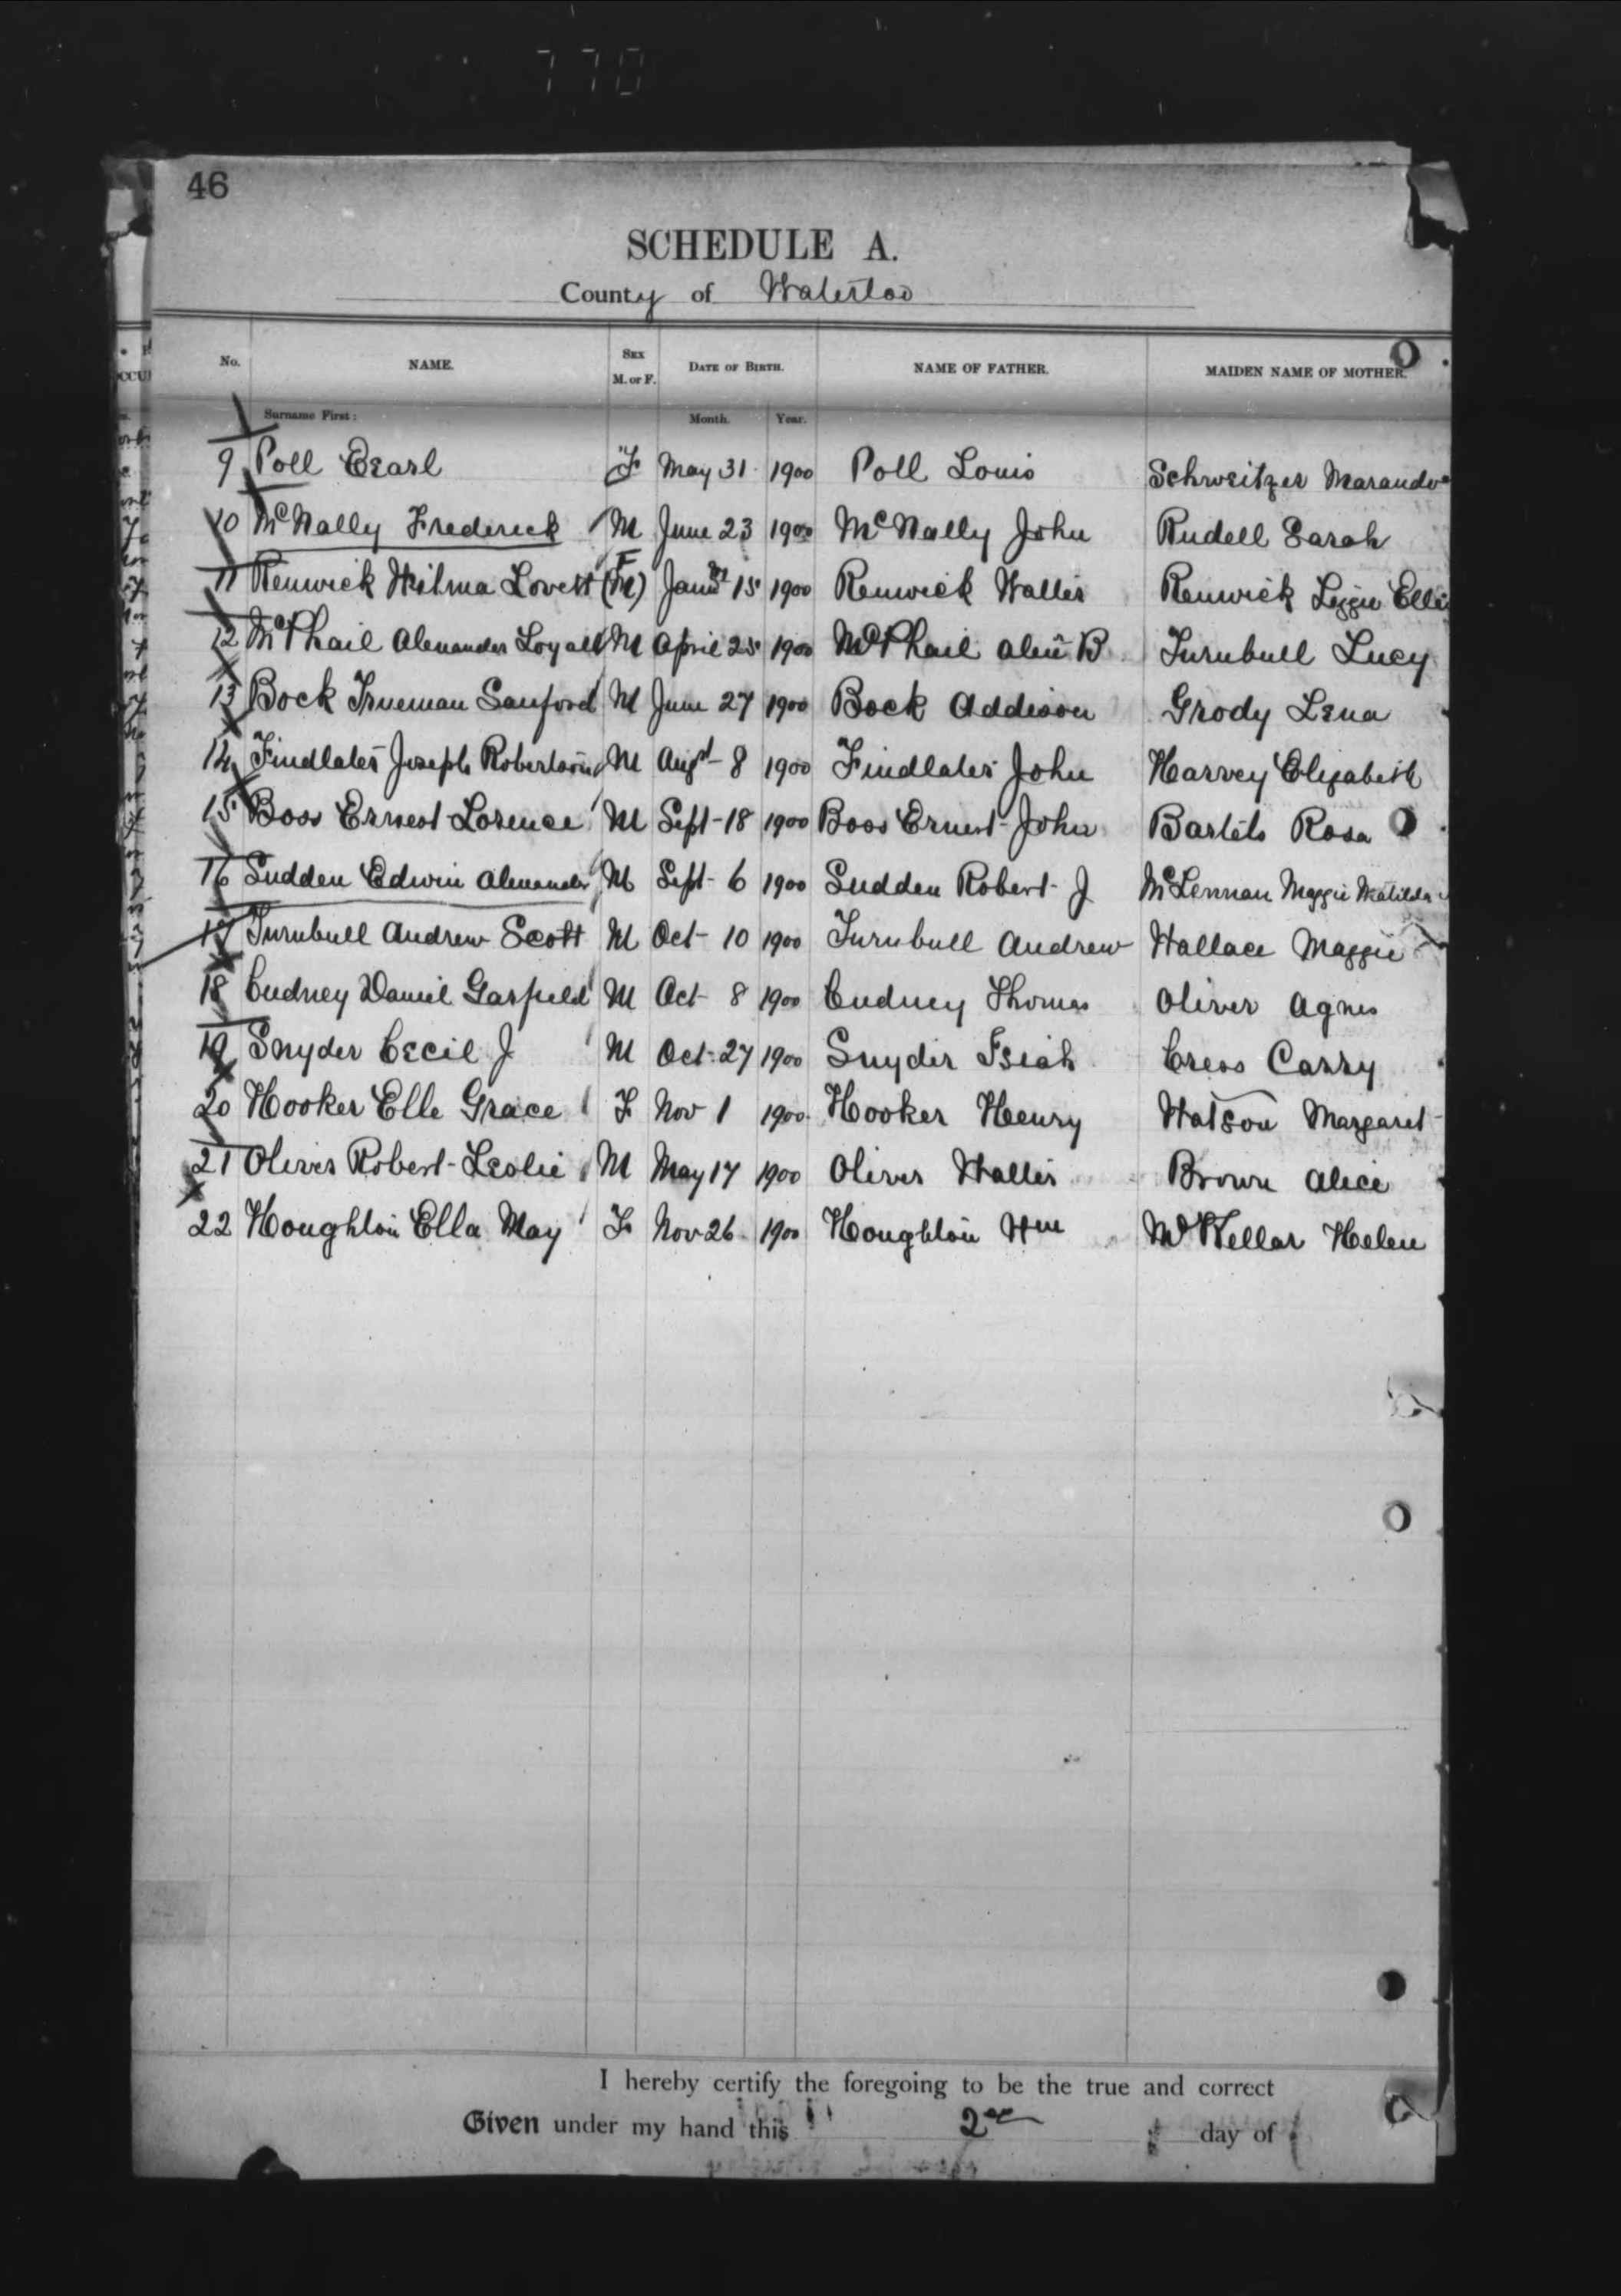 770
46
SCHEDULE A.
County of Waterloo
No. NAME. SEX M. or F. DATE OF BIRTH. NAME OF FATHER. MAIDEN NAME OF MOTHER.
Surname First: Month. Year.
9 Poll Earl F May 31 1900 Poll Louis Schweitzer
10 McNally Frederick M June 23 1900 McNally John Rudell Sarah
11 Renwick Wilma Lovett (M) F 15 1900 Renwick Walter Renwick Lizzie
12 McPhail Alexander Loyall M April 25 1900 McPhail Alex B Turnbull Lucy
13 Bock Trueman Sanford M June 27 1900 Bock Addison Grody Lena
14 Findlater Joseph Robertson M Augst 8 1900 Findlater John Harvey Elizabeth
15 Boos Ernest Lorence M Sept 18 1900 Boos Ernest John Bartels Rosa
16 Sudden Edwin Alexander M Sept 6 1900 Sudden Robert J McLennan Maggie Matilda
17 Turnbull Andrew Scott M Oct 10 1900 Turnbull Andrew Wallace Maggie
18 Cudney Daniel Garfield M Oct 8 1900 Cudney Thomas Oliver Agnes
19 Snyder Cecil J M Oct 27 1900 Snyder Isiah Cress Carry
20 Hooker Elle Grace F Nov 1 1900 Hooker Henry Watson Margaret
21 Oliver Robert Leslie M May 17 1900 Oliver Walter Brown Alice
22 Houghton Ella May F Nov 26 1900 Houghton Wm McKellar Helen
I hereby certify the foregoing to be the true and correct
Given under my hand this 2 day of